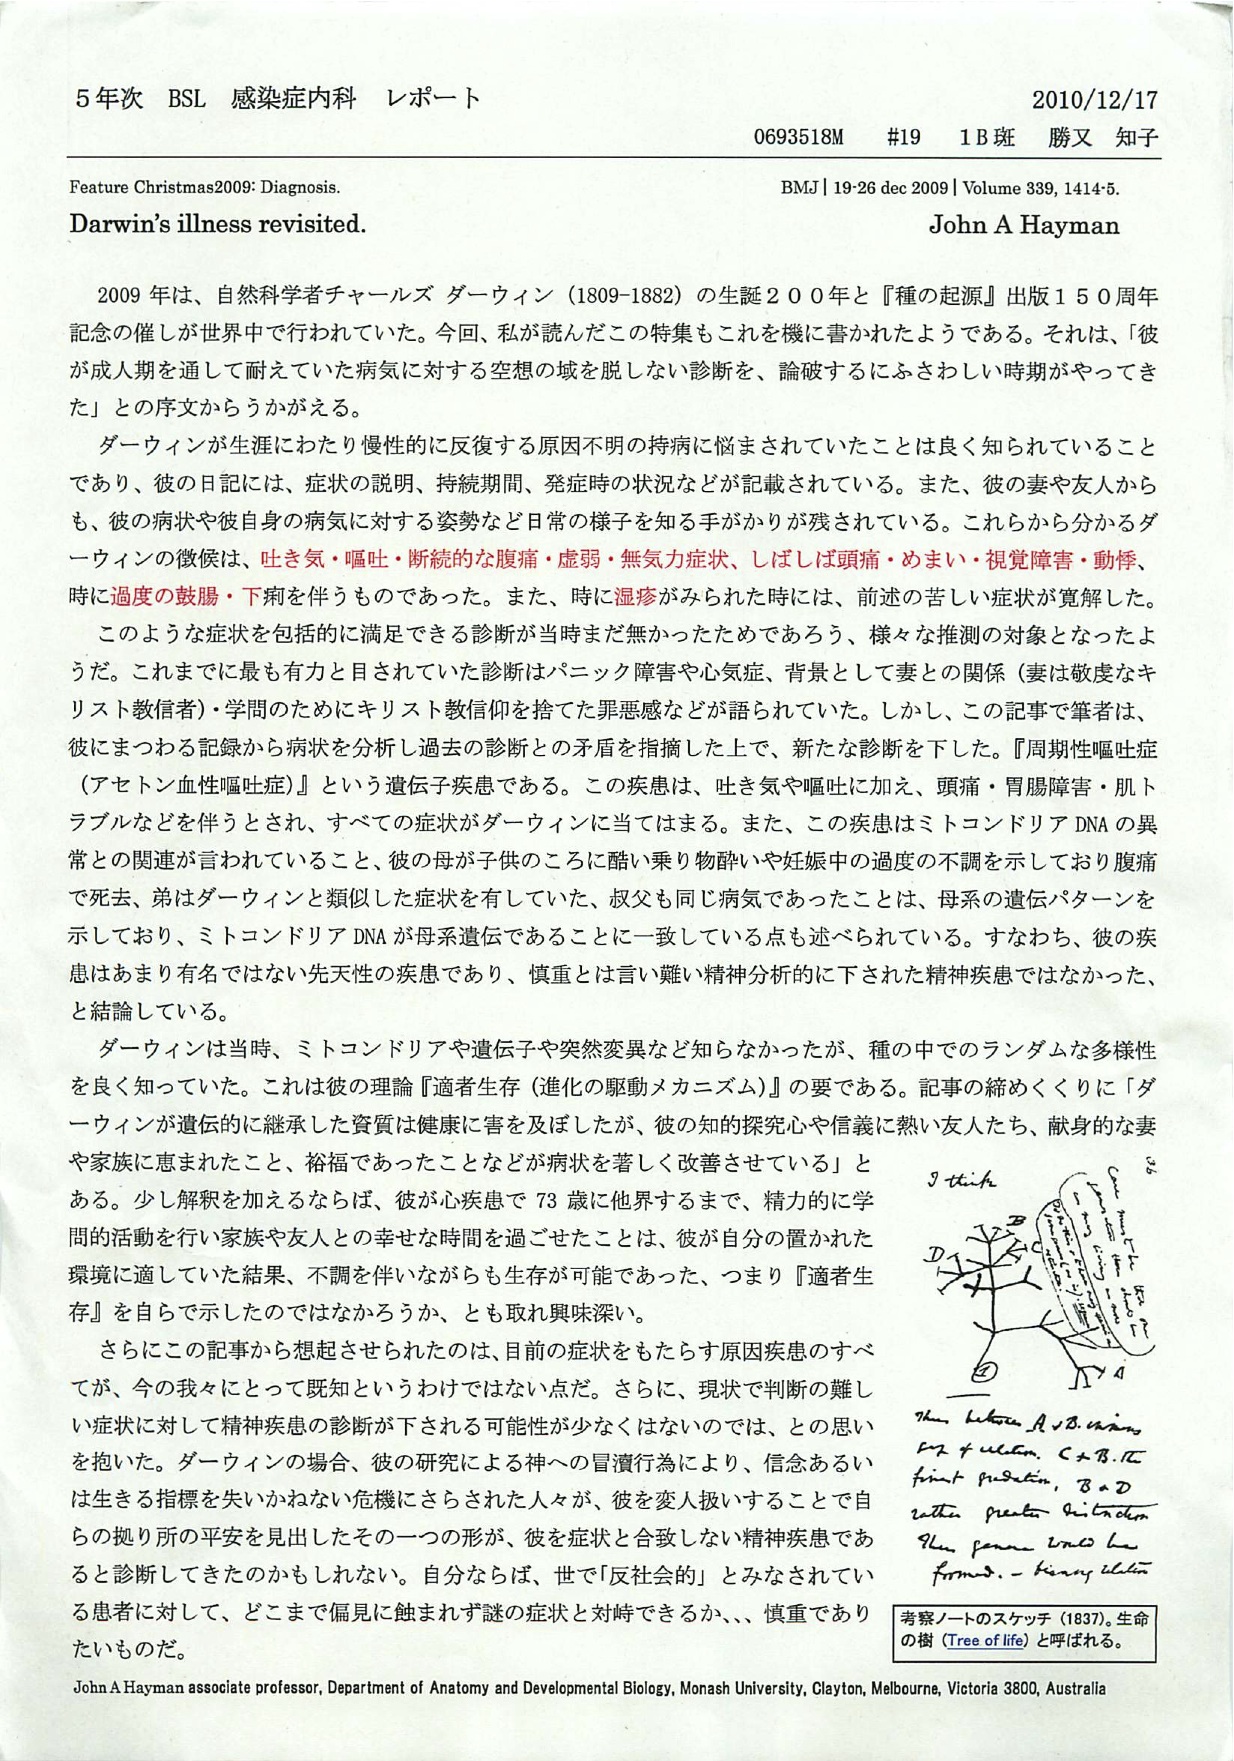 5年次　BSL　感染症内科　レポート　2010/12/17
0693518M　#19　1B班　勝又　知子
Feature Christmas2009: Diagnosis.　BMJ | 19-26 dec 2009 | Volume 339, 1414-5.
Darwin's illness revisited.　John A Hayman
2009 年は、自然科学者チャールズ ダーウィン（1809-1882）の生誕２００年と『種の起源』出版１５０周年
記念の催しが世界中で行われていた。今回、私が読んだこの特集もこれを機に書かれたようである。それは、「彼
が成人期を通して耐えていた病気に対する空想の域を脱しない診断を、論破するにふさわしい時期がやってき
た」との序文からうかがえる。
ダーウィンが生涯にわたり慢性的に反復する原因不明の持病に悩まされていたことは良く知られていること
であり、彼の日記には、症状の説明、持続期間、発症時の状況などが記載されている。また、彼の妻や友人から
も、彼の病状や彼自身の病気に対する姿勢など日常の様子を知る手がかりが残されている。これらから分かるダ
ーウィンの徴候は、吐き気・嘔吐・断続的な腹痛・虚弱・無気力症状、しばしば頭痛・めまい・視覚障害・動悸、
時に過度の鼓腸・下痢を伴うものであった。また、時に湿疹がみられた時には、前述の苦しい症状が寛解した。
このような症状を包括的に満足できる診断が当時まだ無かったためであろう、様々な推測の対象となったよ
うだ。これまでに最も有力と目されていた診断はパニック障害や心気症、背景として妻との関係（妻は敬虔なキ
リスト教信者）・学問のためにキリスト教信仰を捨てた罪悪感などが語られていた。しかし、この記事で筆者は、
彼にまつわる記録から病状を分析し過去の診断との矛盾を指摘した上で、新たな診断を下した。『周期性嘔吐症
（アセトン血性嘔吐症）』という遺伝子疾患である。この疾患は、吐き気や嘔吐に加え、頭痛・胃腸障害・肌ト
ラブルなどを伴うとされ、すべての症状がダーウィンに当てはまる。また、この疾患はミトコンドリア DNA の異
常との関連が言われていること、彼の母が子供のころに酷い乗り物酔いや妊娠中の過度の不調を示しており腹痛
で死去、弟はダーウィンと類似した症状を有していた、叔父も同じ病気であったことは、母系の遺伝パターンを
示しており、ミトコンドリア DNA が母系遺伝であることに一致している点も述べられている。すなわち、彼の疾
患はあまり有名ではない先天性の疾患であり、慎重とは言い難い精神分析的に下された精神疾患ではなかった、
と結論している。
ダーウィンは当時、ミトコンドリアや遺伝子や突然変異など知らなかったが、種の中でのランダムな多様性
を良く知っていた。これは彼の理論『適者生存（進化の駆動メカニズム）』の要である。記事の締めくくりに「ダ
ーウィンが遺伝的に継承した資質は健康に害を及ぼしたが、彼の知的探究心や信義に熱い友人たち、献身的な妻
や家族に恵まれたこと、裕福であったことなどが病状を著しく改善させている」と
ある。少し解釈を加えるならば、彼が心疾患で 73 歳に他界するまで、精力的に学
問的活動を行い家族や友人との幸せな時間を過ごせたことは、彼が自分の置かれた
環境に適していた結果、不調を伴いながらも生存が可能であった、つまり『適者生
存』を自らで示したのではなかろうか、とも取れ興味深い。
さらにこの記事から想起させられたのは、目前の症状をもたらす原因疾患のすべ
てが、今の我々にとって既知というわけではない点だ。さらに、現状で判断の難し
い症状に対して精神疾患の診断が下される可能性が少なくはないのでは、との思い
を抱いた。ダーウィンの場合、彼の研究による神への冒瀆行為により、信念あるい
は生きる指標を失いかねない危機にさらされた人々が、彼を変人扱いすることで自
らの拠り所の平安を見出したその一つの形が、彼を症状と合致しない精神疾患であ
ると診断してきたのかもしれない。自分ならば、世で「反社会的」とみなされてい
る患者に対して、どこまで偏見に蝕まれず謎の症状と対峙できるか、、、慎重であり
たいものだ。
I think
B
D
C
A
1
36
Thus between A & B. immens
gap of relation. C & B. the
finest gradation, B & D
rather greater distinction
Thus genera would be
formed. — bearing relation
考察ノートのスケッチ（1837）。生命
の樹（Tree of life）と呼ばれる。
John A Hayman associate professor, Department of Anatomy and Developmental Biology, Monash University, Clayton, Melbourne, Victoria 3800, Australia